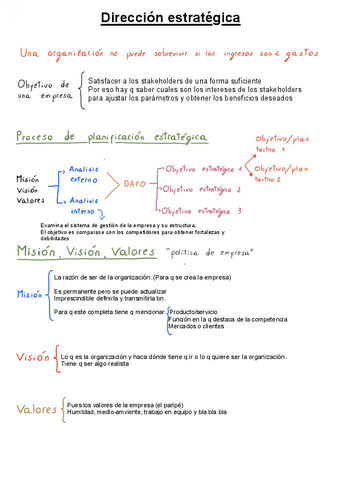 Dirección estratégica
Una organización no puede sobrevivir si los ingresos son < gastos
Objetivo de una empresa
Satisfacer a los stakeholders de una forma suficiente
Por eso hay q saber cuales son los intereses de los stakeholders
para ajustar los parámetros y obtener los beneficios deseados
Proceso de planificación estratégica
Misión
Visión
Valores
Analisis externo
Analisis interno
DAFO
Objetivo estratégico 1
Objetivo estratégico 2
Objetivo estratégico 3
Objetivo/plan
tactico 1
Objetivo/plan
tactico 2
Examina el sistema de gestión de la empresa y su estructura.
El objetivo es compararse con los competidores para obtener fortalezas y
debilidades
Misión, Visión, Valores "política de empresa"
Misión
La razón de ser de la organización. (Para q se crea la empresa)
Es permanente pero se puede actualizar
Imprescindible definirla y transmitirla bn.
Para q este completa tiene q mencionar:
Producto/servicio
Función en la q destaca de la competencia
Mercados o clientes
Visión
Lo q es la organización y haca dónde tiene q ir o lo q quiere ser la organización.
Tiene q ser algo realista
Valores
Pues los valores de la empresa (el paripé)
Humildad, medio-amviente, trabajo en equipo y bla bla bla